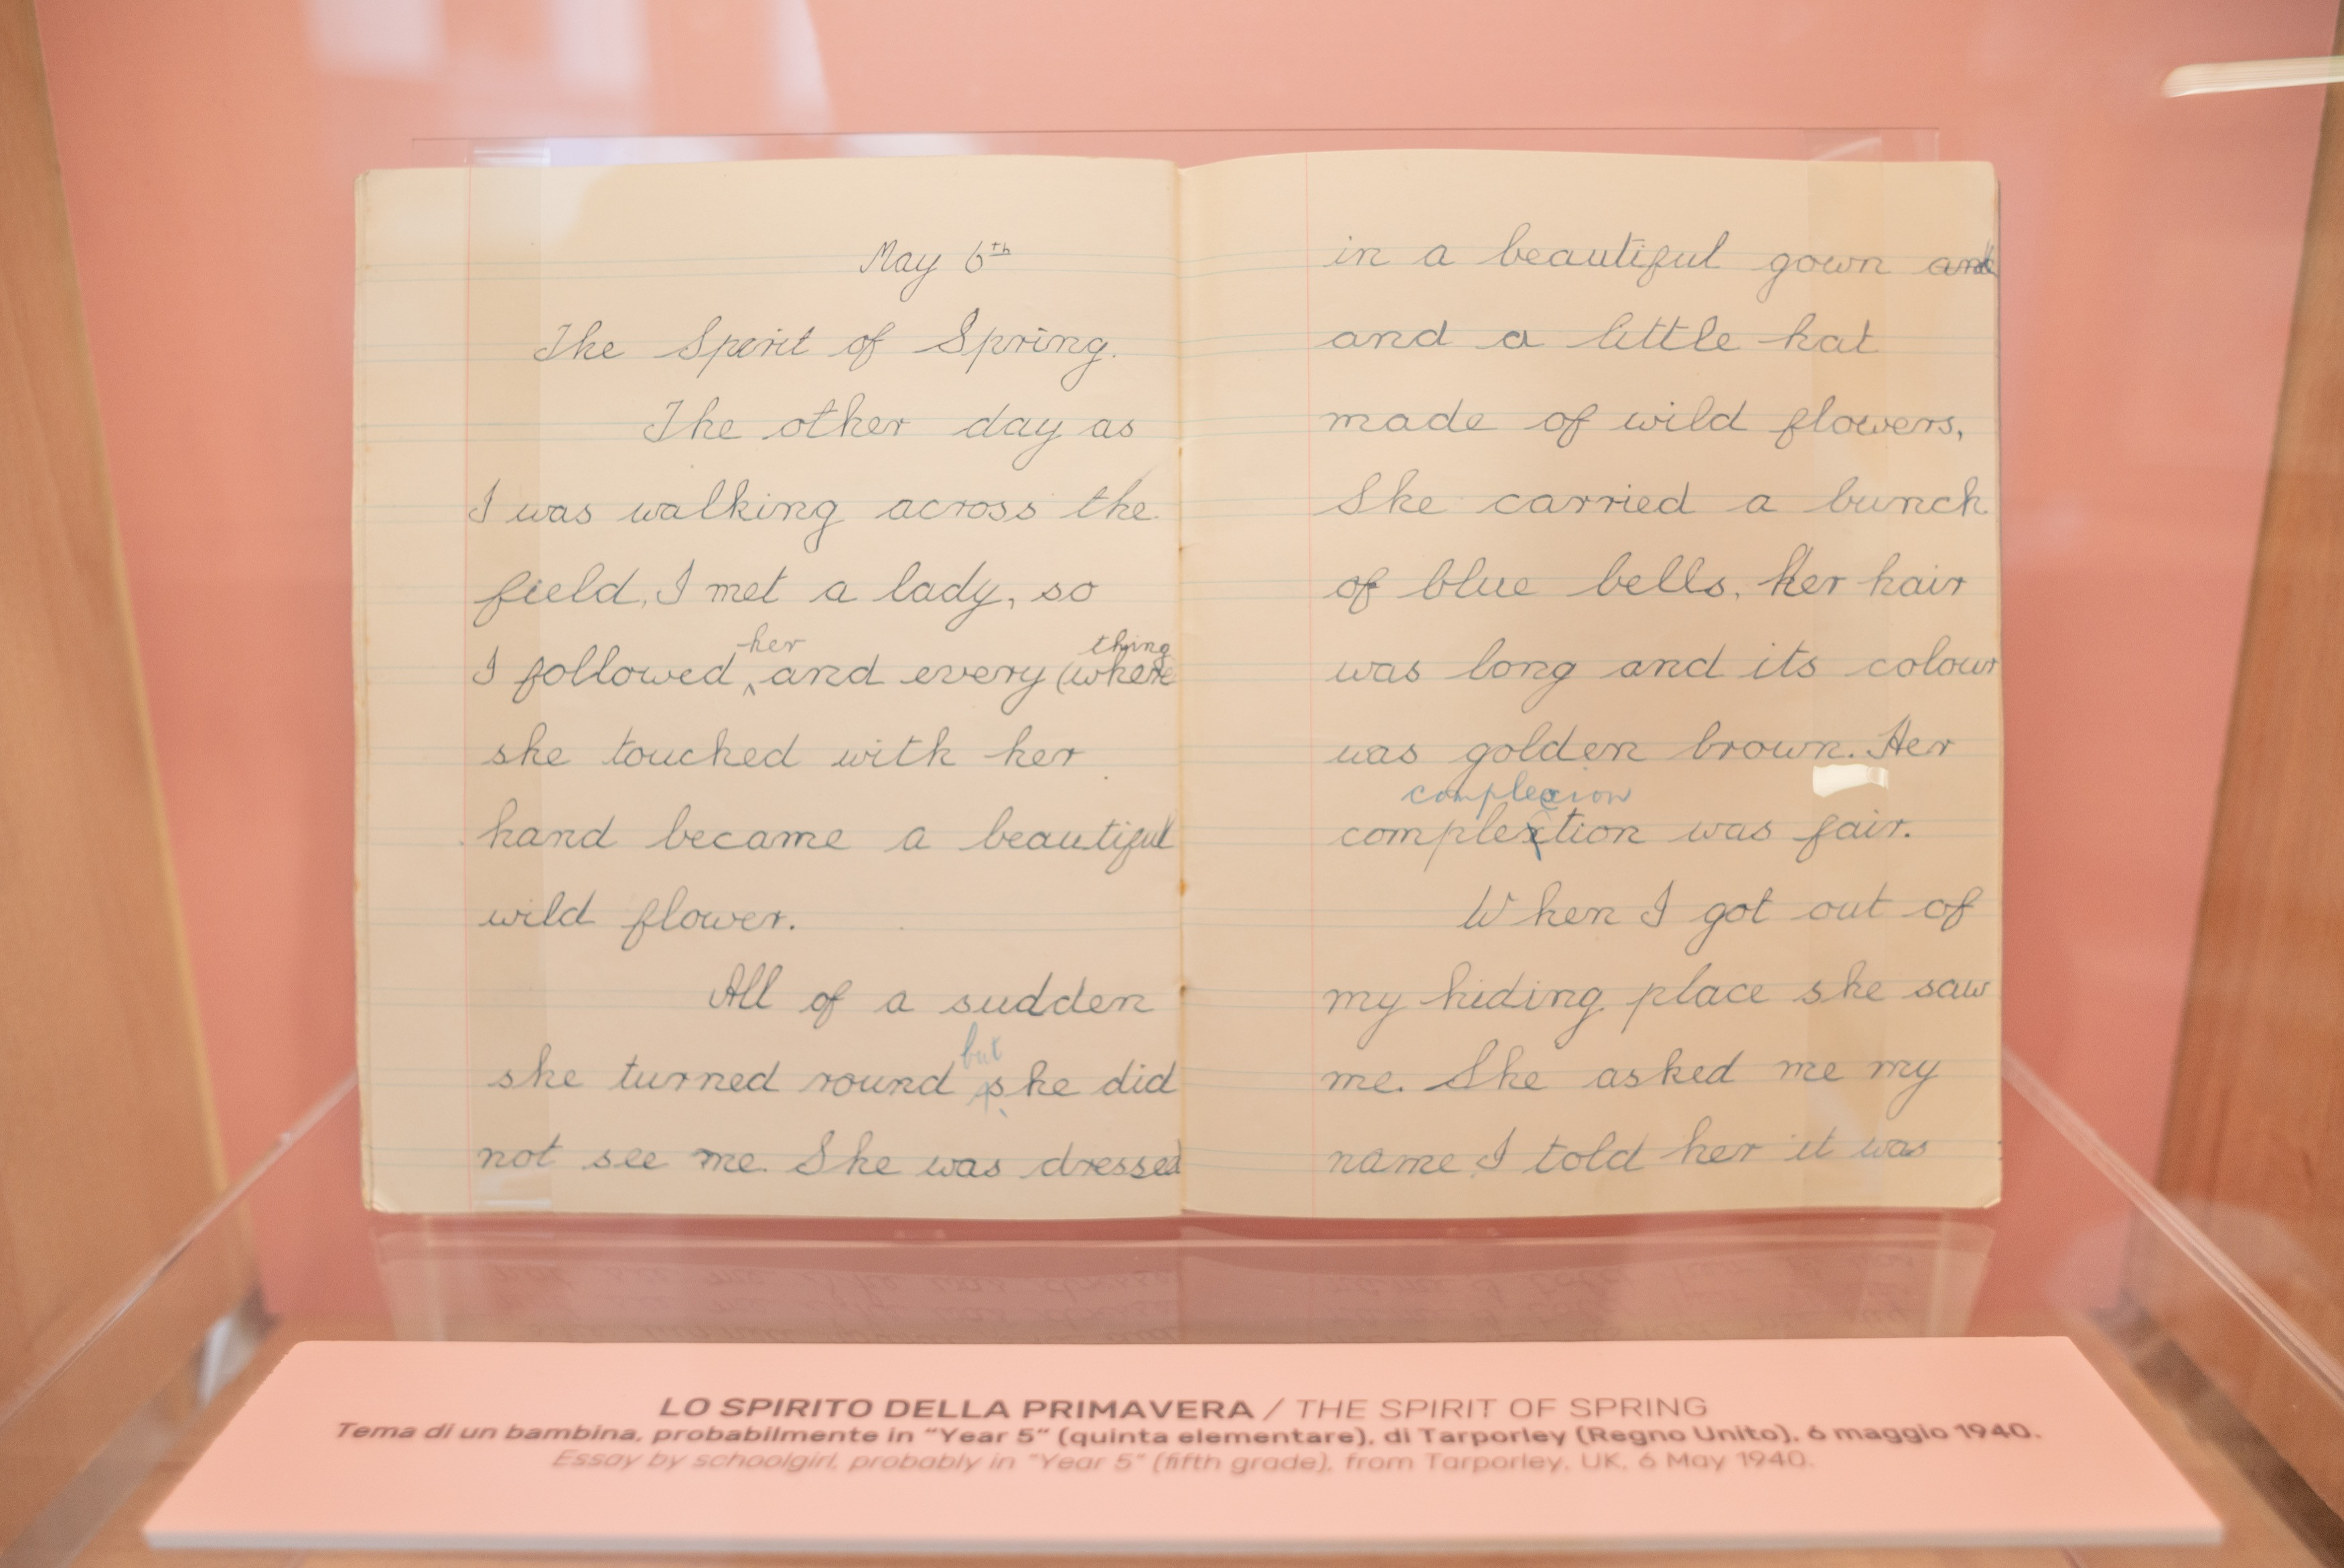 May 6th
The Spirit of Spring.
The other day as
I was walking across the
field, I met a lady, so
her thing
I followed, and every (where
she touched with her
hand became a beautiful
wild flower.
All of a sudden
but
she turned round she did
not see me. She was dressed
in a beautiful gown and
and a little hat
made of wild flowers,
She carried a bunch
of blue bells, her hair
was long and its colour
was golden brown. Her
complexion
complextion was fair.
When I got out of
my hiding place she saw
me. She asked me my
name I told her it was
LO SPIRITO DELLA PRIMAVERA / THE SPIRIT OF SPRING
Tema di un bambina, probabilmente in "Year 5" (quinta elementare), di Tarporley (Regno Unito), 6 maggio 1940.
Essay by schoolgirl, probably in "Year 5" (fifth grade), from Tarporley, UK, 6 May 1940.